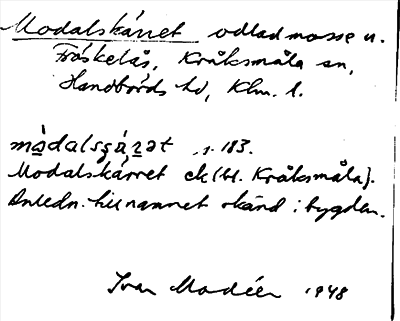 Modalskärret odlad mosse n.
Fröskelås, Kråksmåla sn,
Handbörds hd, Klm. l.
mo̱dalsʂä́ṟət .1. 183.
Modalskärret ek (bl. Kråksmåla).
Anledn. till namnet okänd i bygden.
Ivar Modéer 1948